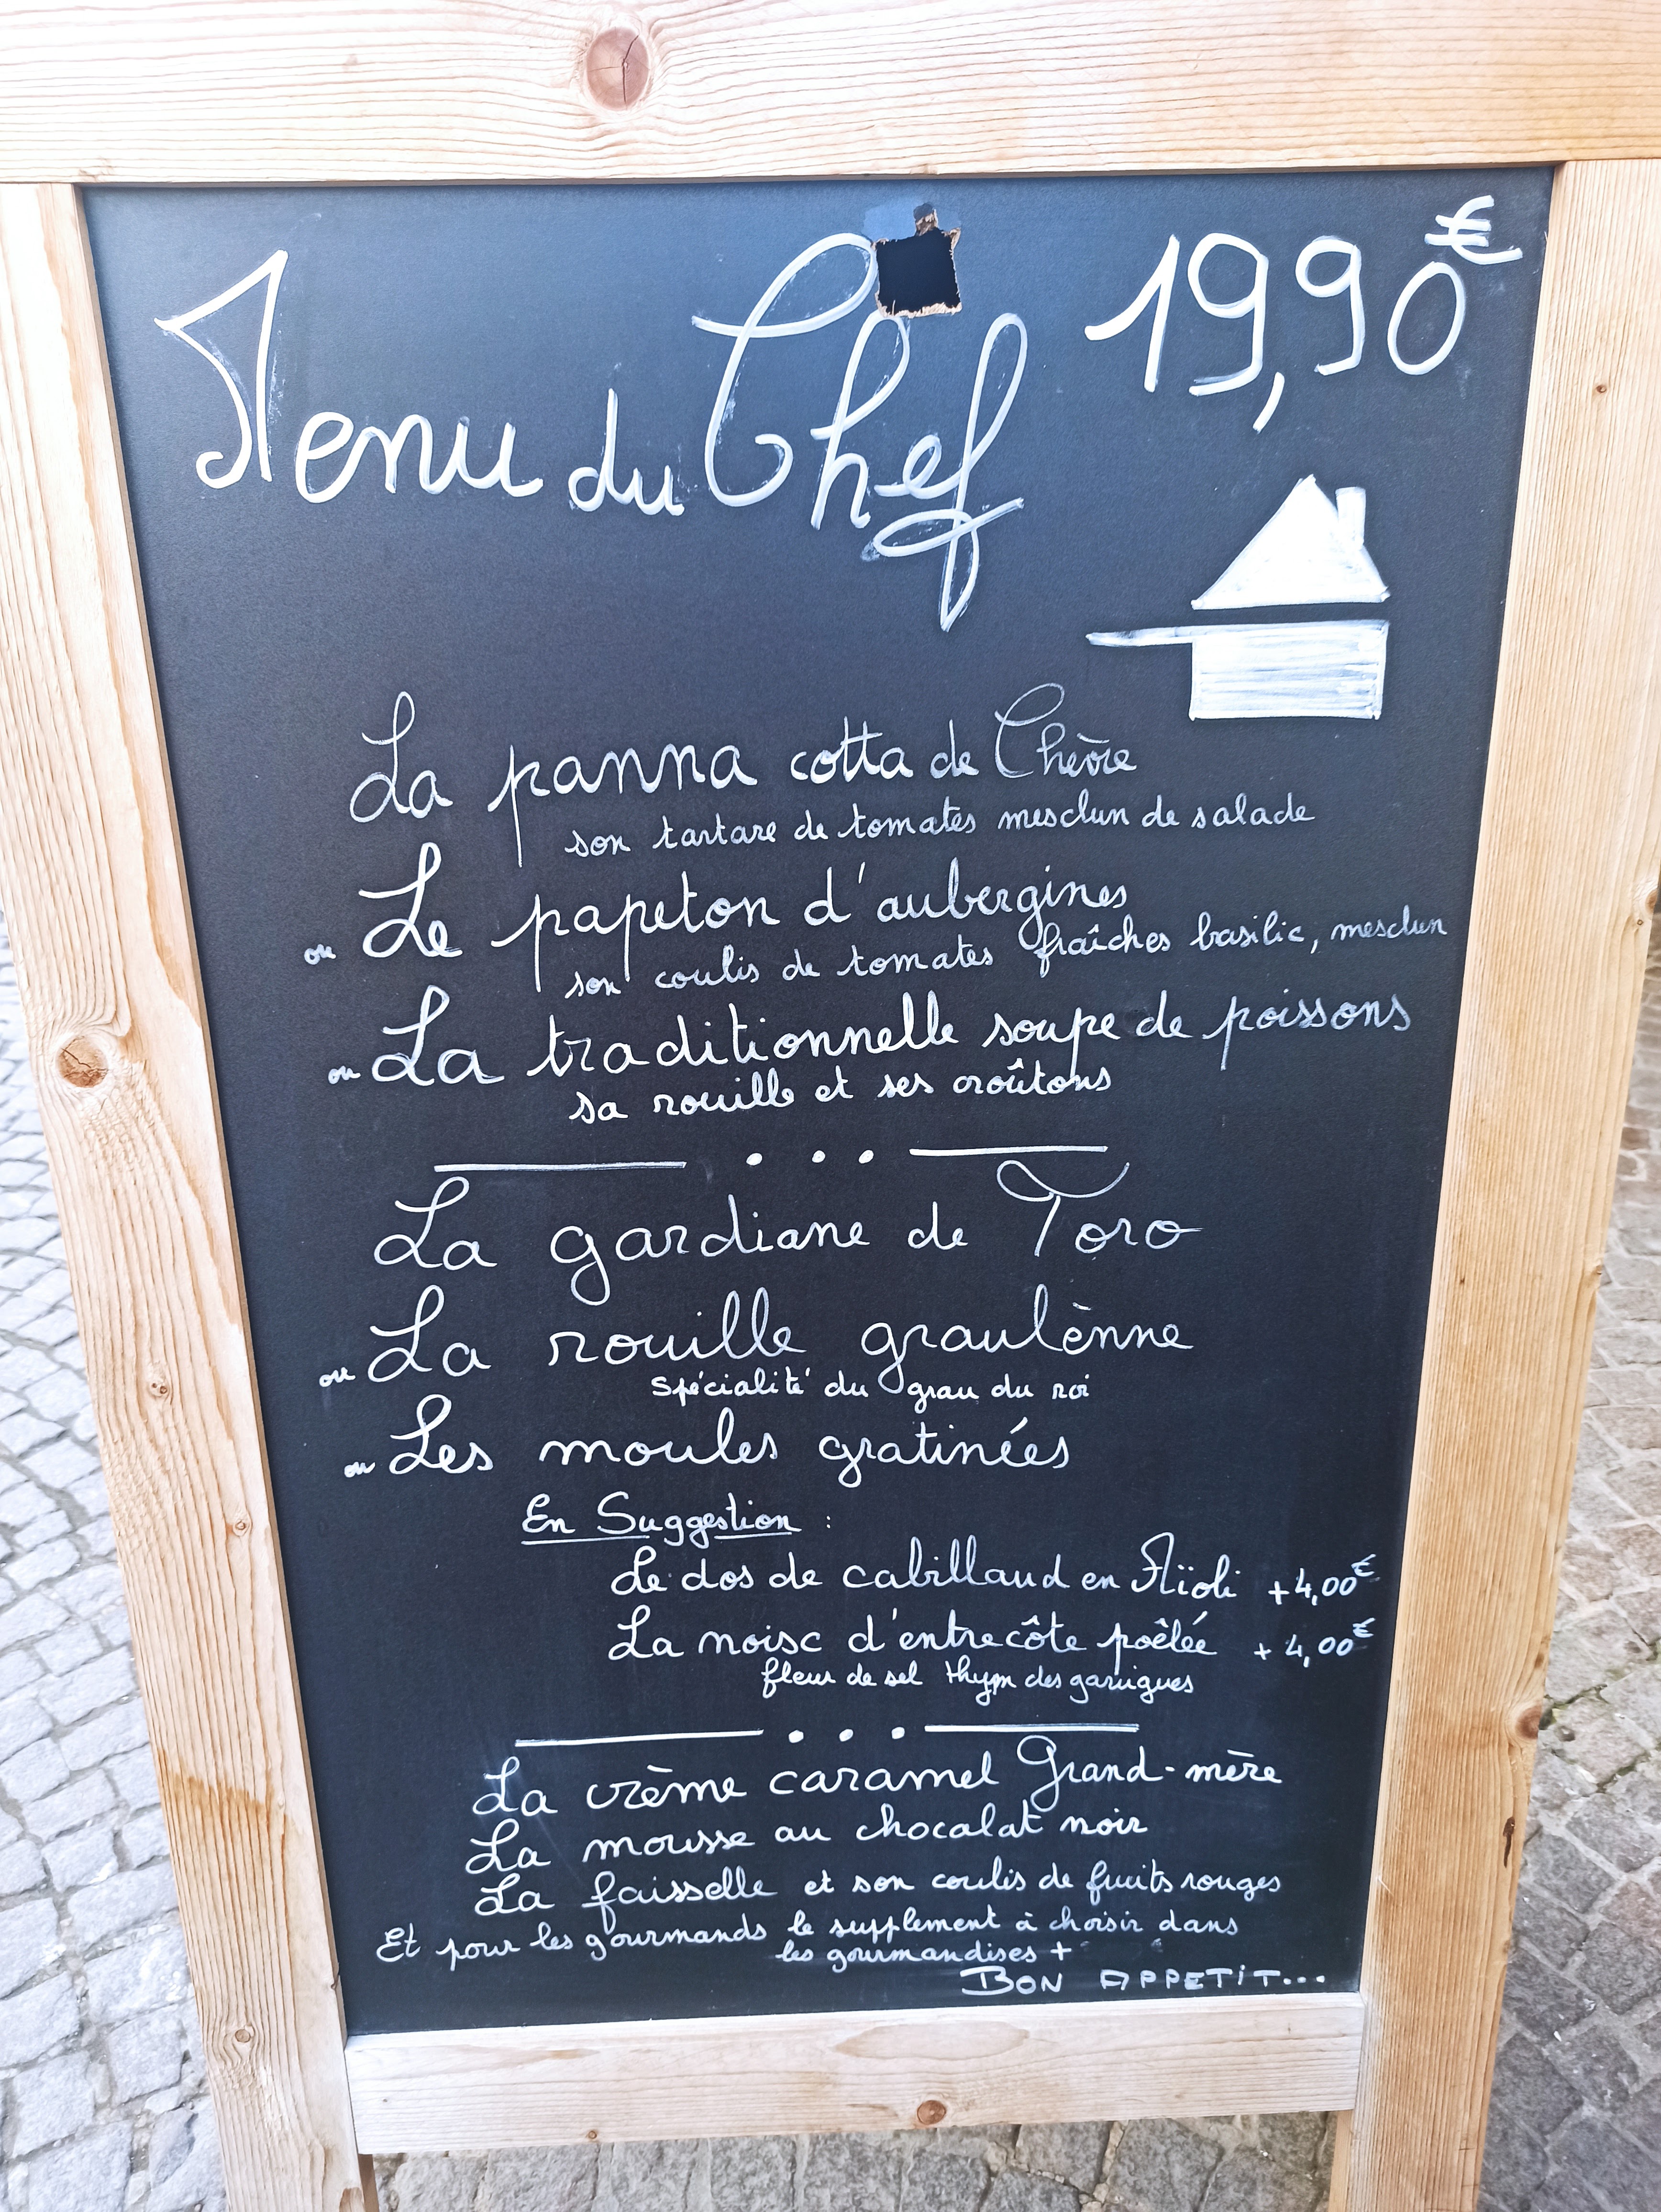 Menu du Chef 19,90€
La panna cotta de Chèvre
son tartare de tomates mesclun de salade
ou Le papeton d'aubergines
son coulis de tomates fraîches basilic, mesclun
ou La traditionnelle soupe de poissons
sa rouille et ses croûtons
La gardiane de Toro
ou La rouille graulènne
spécialité du grau du roi
ou Les moules gratinées
En Suggestion :
Le dos de cabillaud en Aïoli +4,00€
La noisc d'entrecôte poêlée + 4,00€
fleur de sel thym des garrigues
La crème caramel Grand-mère
La mousse au chocalat noir
La faisselle et son coulis de fruits rouges
Et pour les gourmands le supplement à choisir dans
les gourmandises +
BON APPETIT...